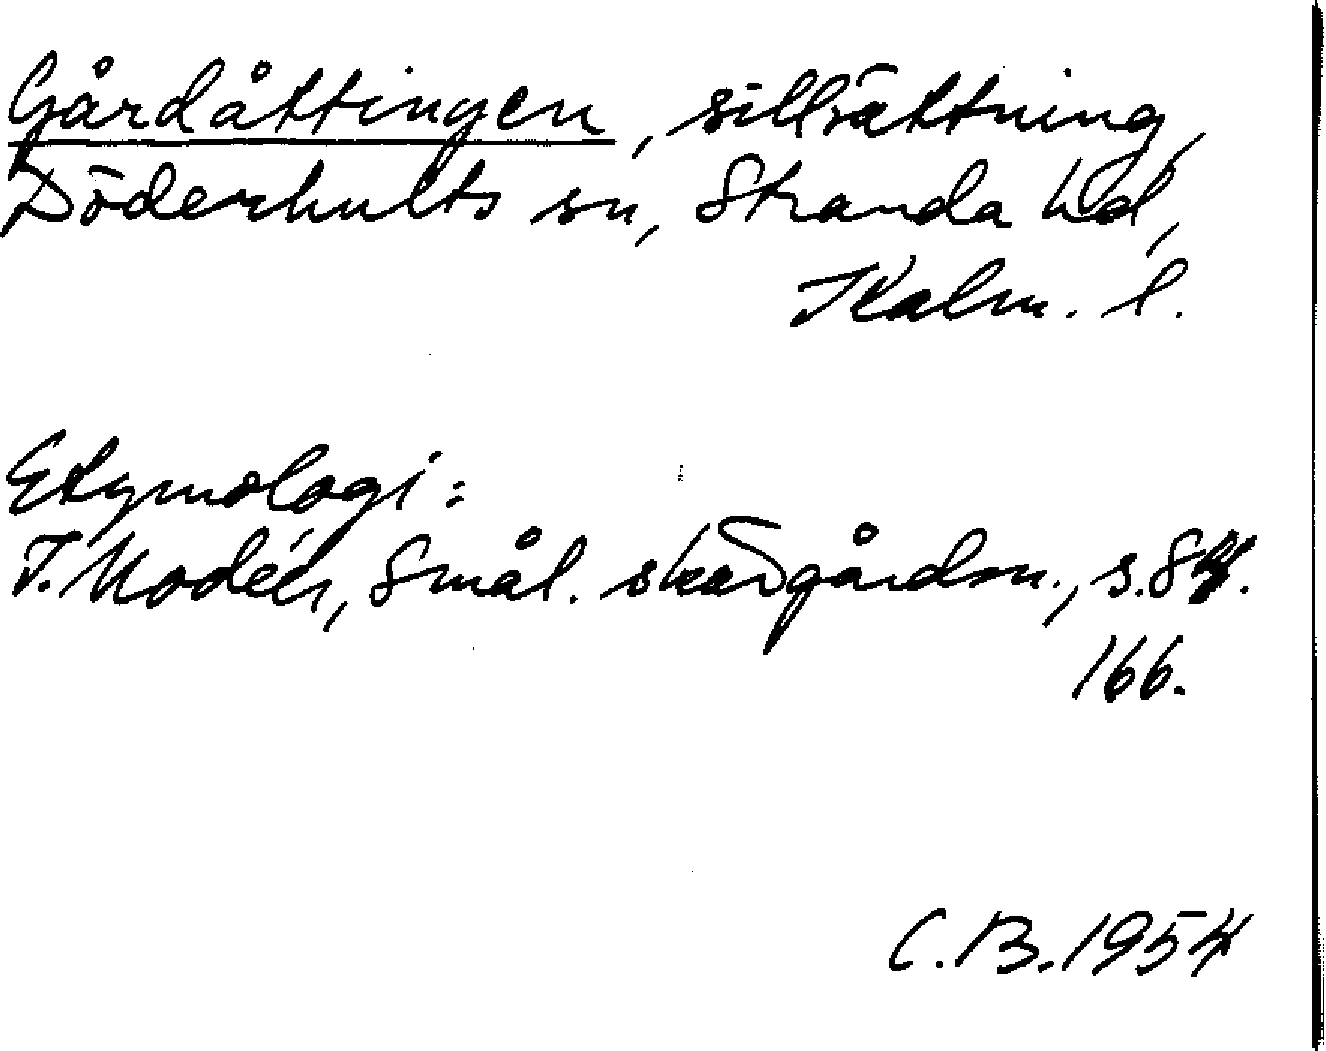 Gårdåttingen, sillsättning,
Döderhults sn, Stranda hd,
Kalm. l.
Etymologi:
I. Modéer, Smål. skärgårdsn., s. 84.
166.
C.B. 1954